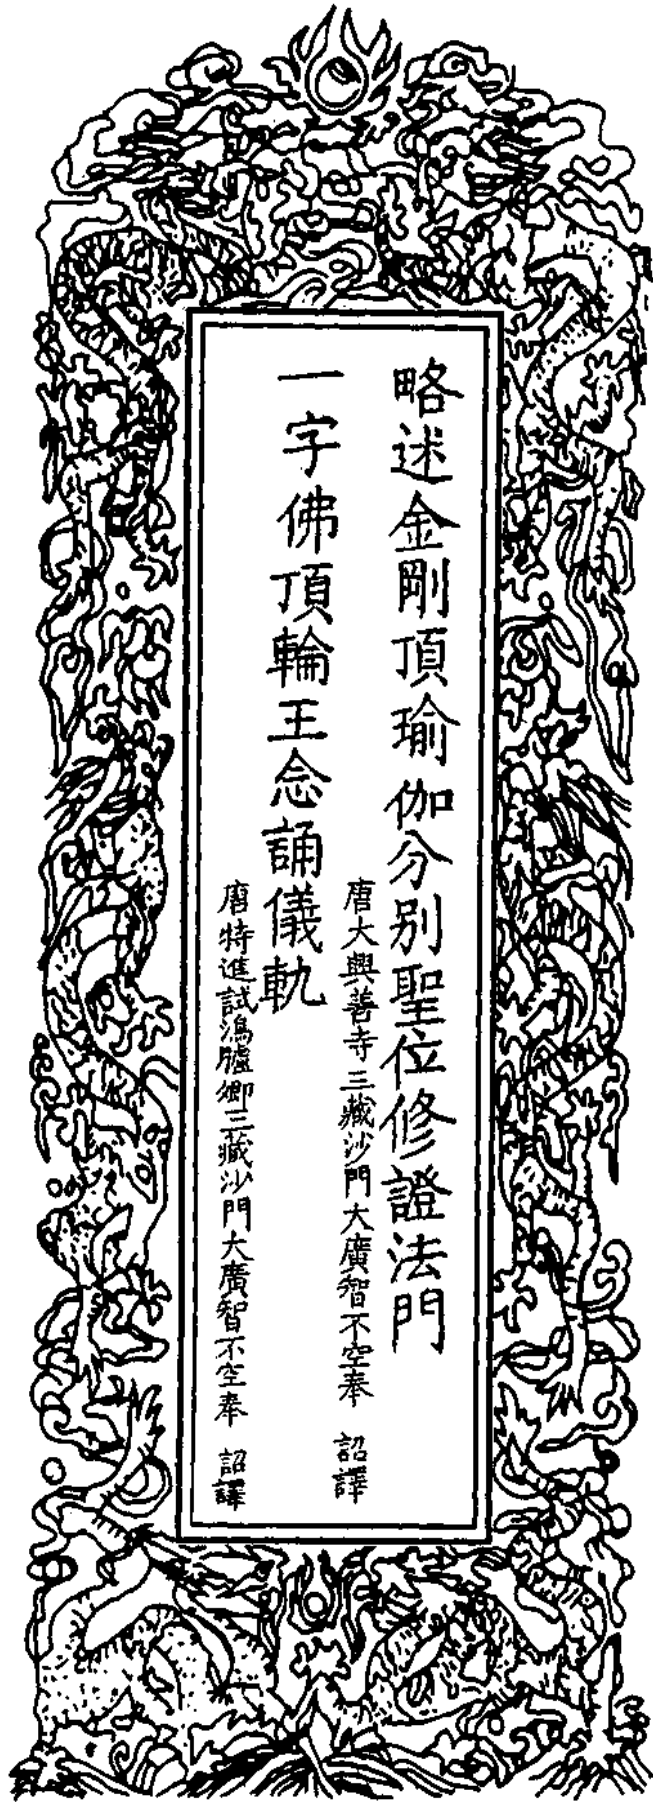 略述金剛頂瑜伽分別聖位修證法門
唐大興善寺三藏沙門大廣智不空奉 詔譯
一字佛頂輪王念誦儀軌
唐特進試鴻臚卿三藏沙門大廣智不空奉 詔譯